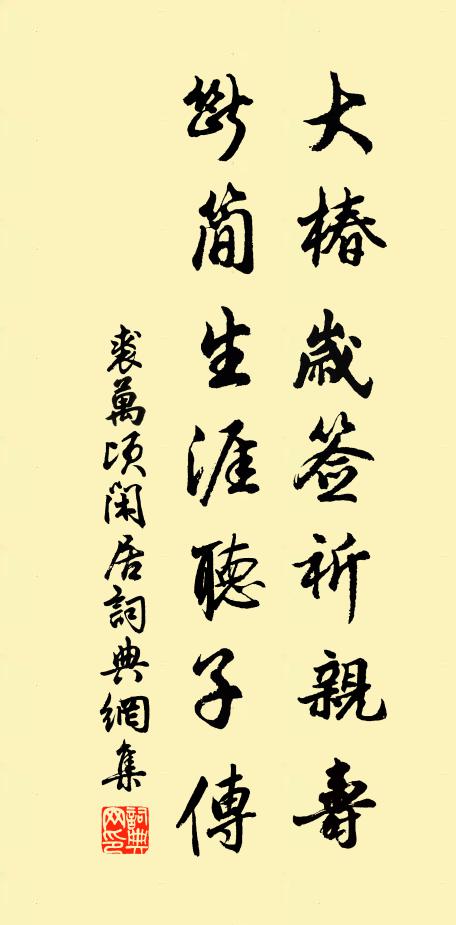 大椿歲簽祈親壽
斷簡生涯聽子傳
裘萬頃閑居詞典網集
詞典網印